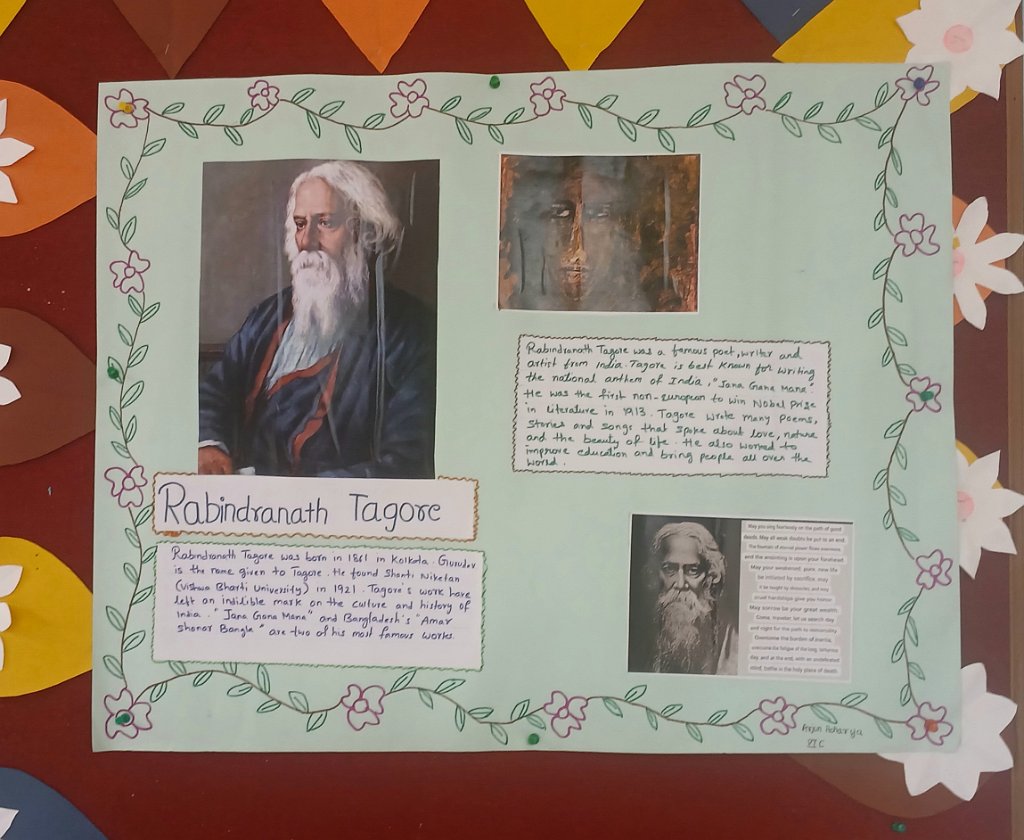 Rabindranath Tagore
Rabindranath Tagore was born in 1861 in Kolkata. Gurudev
is the name given to Tagore. He found Shanti Niketan
(Vishwa Bharti University) in 1921. Tagore's work have
left an indilible mark on the culture and history of
India. "Jana Gana Mana" and Bangladesh's "Amar
shonar Bangla" are two of his most famous works.
Rabindranath Tagore was a famous poet, writer and
artist from India. Tagore is best known for writing
the national anthem of India, "Jana Gana Mana."
He was the first non-European to win Nobel Prize
in literature in 1913. Tagore wrote many poems,
stories and songs that spoke about love, nature
and the beauty of life. He also worked to
improve education and bring people all over the
world.
May you sing fearlessly on the path of good
deeds. May all weak doubts be put to an end.
The fountain of eternal power flows
and the anointing is upon your forehead.
May your weakened, pure, new life
be initiated by sacrifice, may
it be taught by miracles, and may
cruel hardships give you honour.
May sorrow be your great wealth.
Come, traveler, let us search day
and night for the path to immortality.
Overcome the burden of inertia,
overcome the fatigue of the long, tiresome
day, and at the end, with an undefeated
mind, bathe in the holy place of death.
Arjun Acharya
XI C